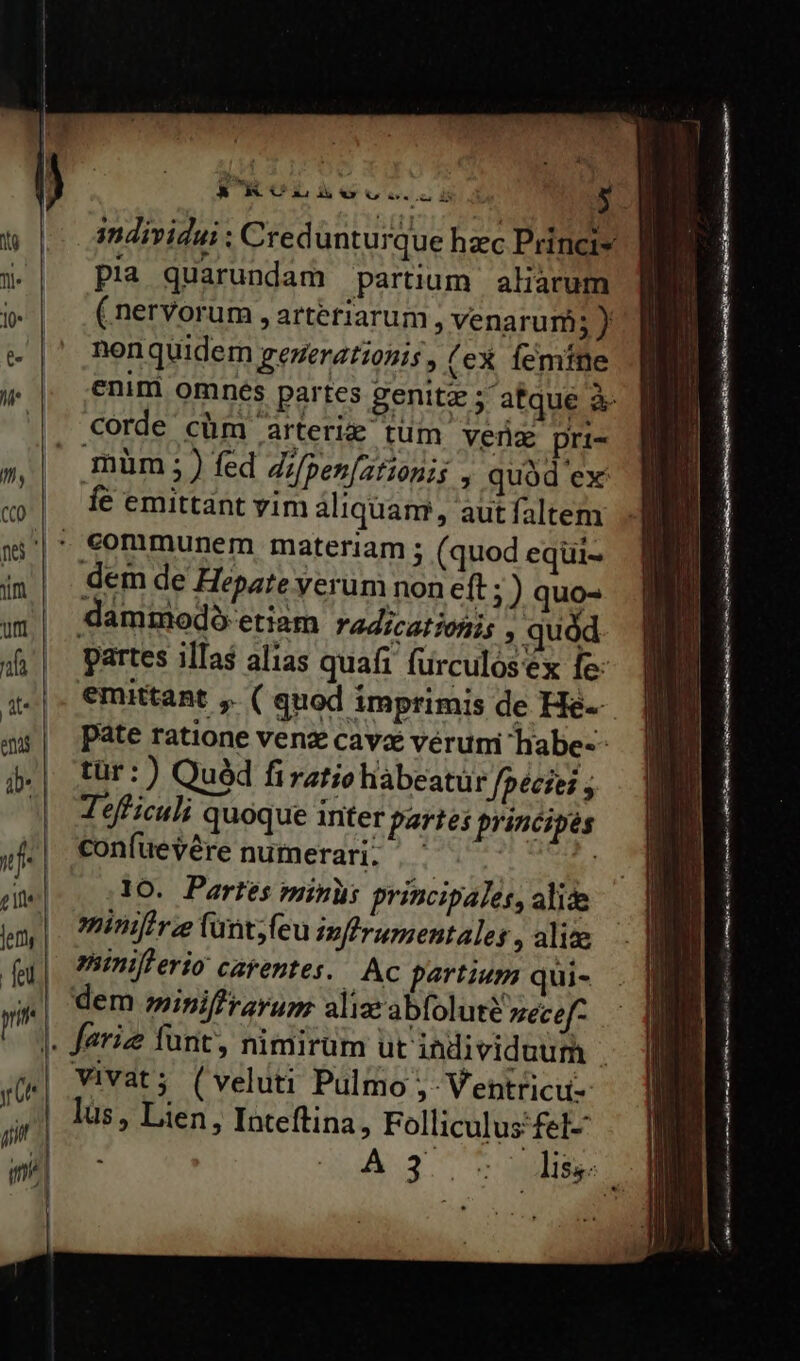 5
individui: Creduntúrque hæc Princi-
pia quarundam partium aliarum
(nervorum, arteriarum, venarum; )
non quidem generationis, (ex ſemine
enim omnes partes genitæ; atque à
corde cùm arteriæ tùm venæ pri-
mùm; ) ſed diſpenſationis, quòd ex
ſe emittant vim aliquam, aut ſaltem
communem materiam; (quod equi-
dem de Hepate verum non eſt; ) quo-
dammodò etiam radicationis, quòd
partes illas alias quaſi ſurculos ex ſe
emittant, (quod imprimis de He-
pate ratione venæ cavæ verum habe-
tur: ) Quòd ſi ratio habeatur ſpeciei,
Teſticuli quoque inter partes principes
conſuevêre numerari.
10. Partes minùs principales, aliæ
miniſtræ ſunt, ſeu inſtrumentales, aliæ
miniſterio carentes. Ac partium qui-
dem miniſtrarum aliæ abſolutè neceſ-
ſariæ ſunt, nimirum ut individuum
vivat; (veluti Pulmo, Ventricu-
lus, Lien, Inteſtina, Folliculus fel-
A 3 lis,